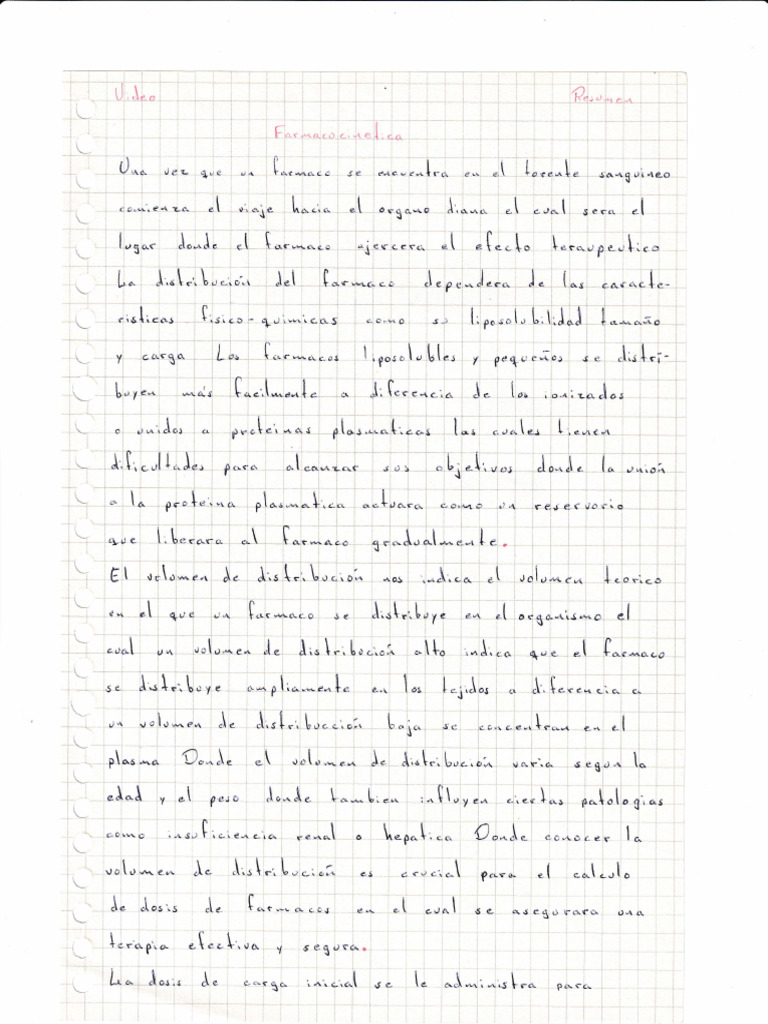 Video
Resumen
Farmacocinetica
Una vez que un farmaco se encuentra en el torente sanguineo
comienza el viaje hacia el organo diana el cual sera el
lugar donde el farmaco ejercera el efecto teraupeutico
La distribución del farmaco dependera de las caracte-
risticas fisico-quimicas como su liposolubilidad tamaño
y carga Los farmacos liposolubles y pequeños se distri-
buyen más facilmente a diferencia de los ionizados
o unidos a proteinas plasmaticas las cuales tienen
dificultades para alcanzar sus objetivos donde la unión
a la proteina plasmatica actuara como un reservorio
que liberara al farmaco gradualmente.
El volumen de distribución nos indica el volumen teorico
en el que un farmaco se distribuye en el organismo el
cual un volumen de distribución alto indica que el farmaco
se distribuye ampliamente en los tejidos a diferencia a
un volumen de distribucción baja se concentran en el
plasma Donde el volumen de distribución varia segun la
edad y el peso donde tambien influyen ciertas patologias
como insuficiencia renal o hepatica Donde conocer la
volumen de distribución es crucial para el calculo
de dosis de farmacos en el cual se asegurara una
terapia efectiva y segura.
La dosis de carga inicial se le administra para